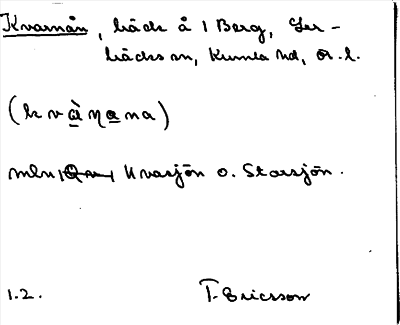 Kvarnån, bäck å i Berg, Ler-
bäcks sn, Kumla hd, Ör. l.
(kvànana)
mln Kvasjön o. Storsjön.
1.2. T. Ericsson